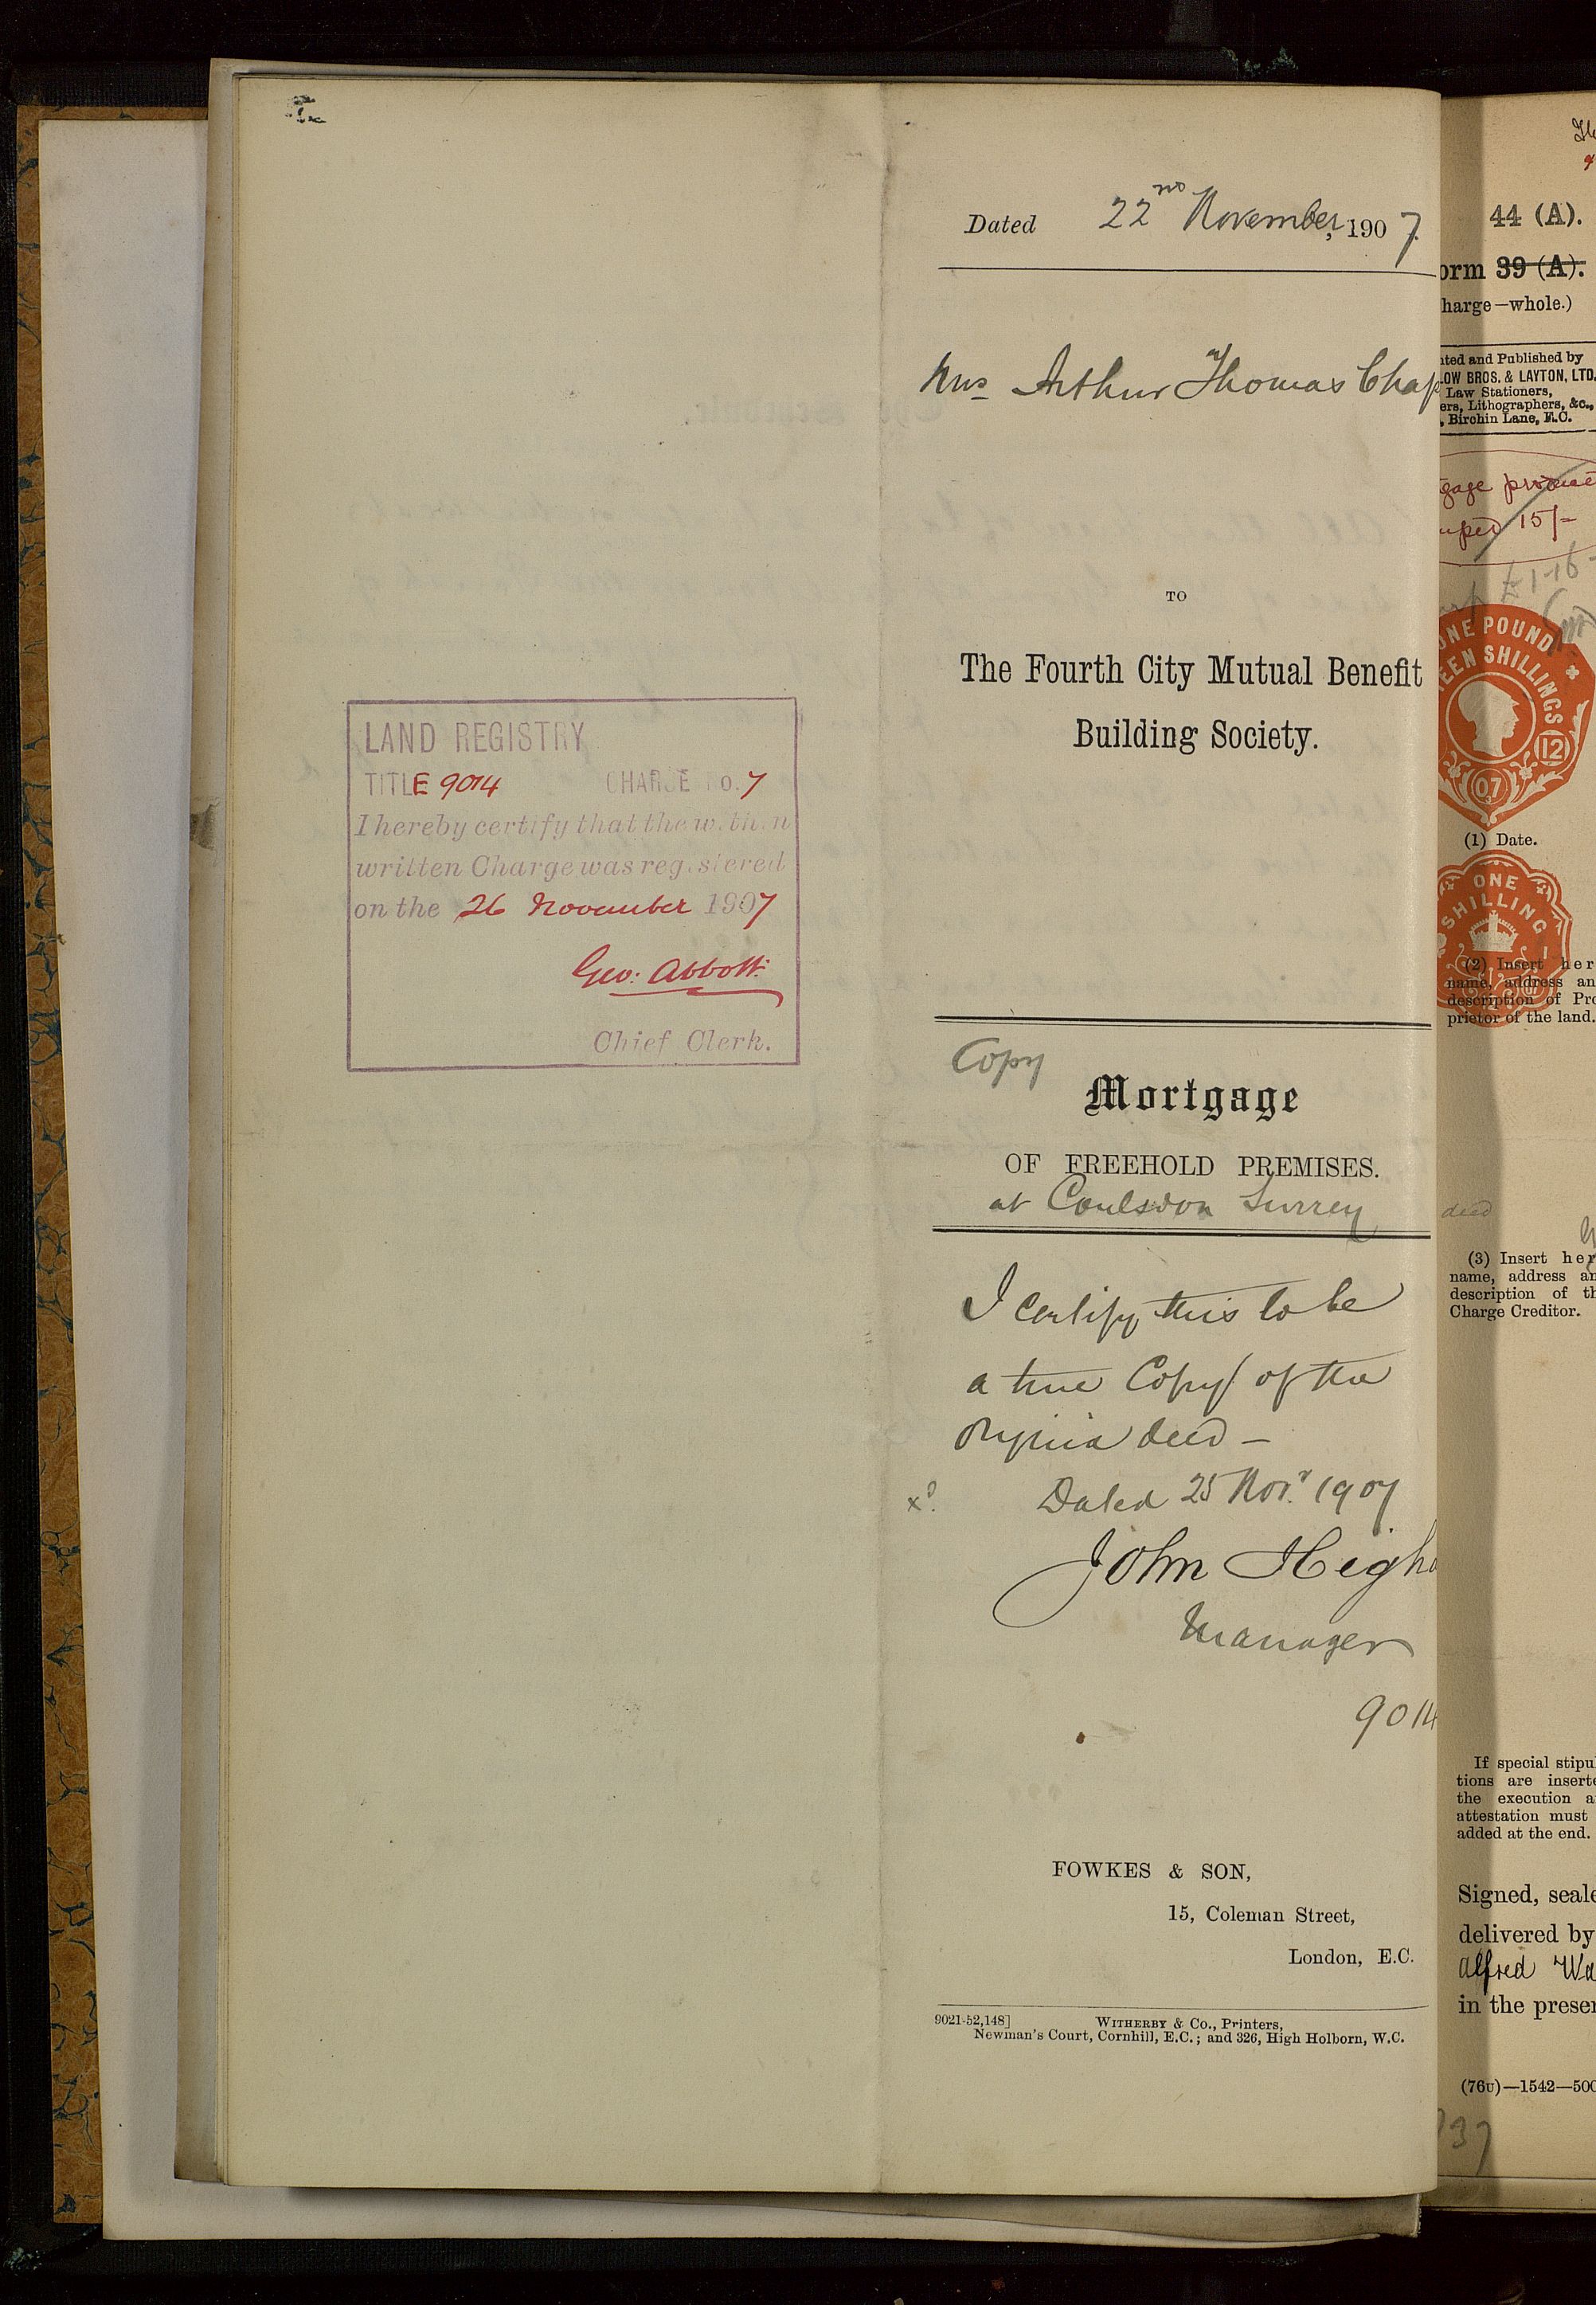 Dated 22nd November, 1907.
Arthur Thomas Chap
TO
The Fourth City Mutual Benefit
Building Society.
LAND REGISTRY
TITLE 9014 CHARGE No. 7
I hereby certify that the within
written Charge was registered
on the 26 November 1907
Geo: Abbott
Chief Clerk.
Copy
Mortgage
OF FREEHOLD PREMISES.
at Coulsdon Surrey
I certify this to be
a true Copy of the
deed –
Dated 25 Novr. 1907
John High
Manager
9014
FOWKES & SON,
15, Coleman Street,
London, E.C.
9021-52,148] WITHERBY & Co., Printers,
Newman's Court, Cornhill, E.C.; and 326, High Holborn, W.C.
44 (A).
orm 39 (A).
harge—whole.)
ted and Published by
LOW BROS. & LAYTON, LTD.
Law Stationers,
ers, Lithographers, &c.,
, Birchin Lane, E.C.
gage produced
15/-
£1-16-
ONE POUND
EEN SHILLINGS
12
07
(1) Date.
ONE
SHILLING
(2) Insert her
name, address an
description of Pro
prietor of the land.
deed
(3) Insert her
name, address an
description of th
Charge Creditor.
If special stipu
tions are inserte
the execution a
attestation must
added at the end.
Signed, seale
delivered by
Alfred Wa
in the preser
(76U)—1542—500
37